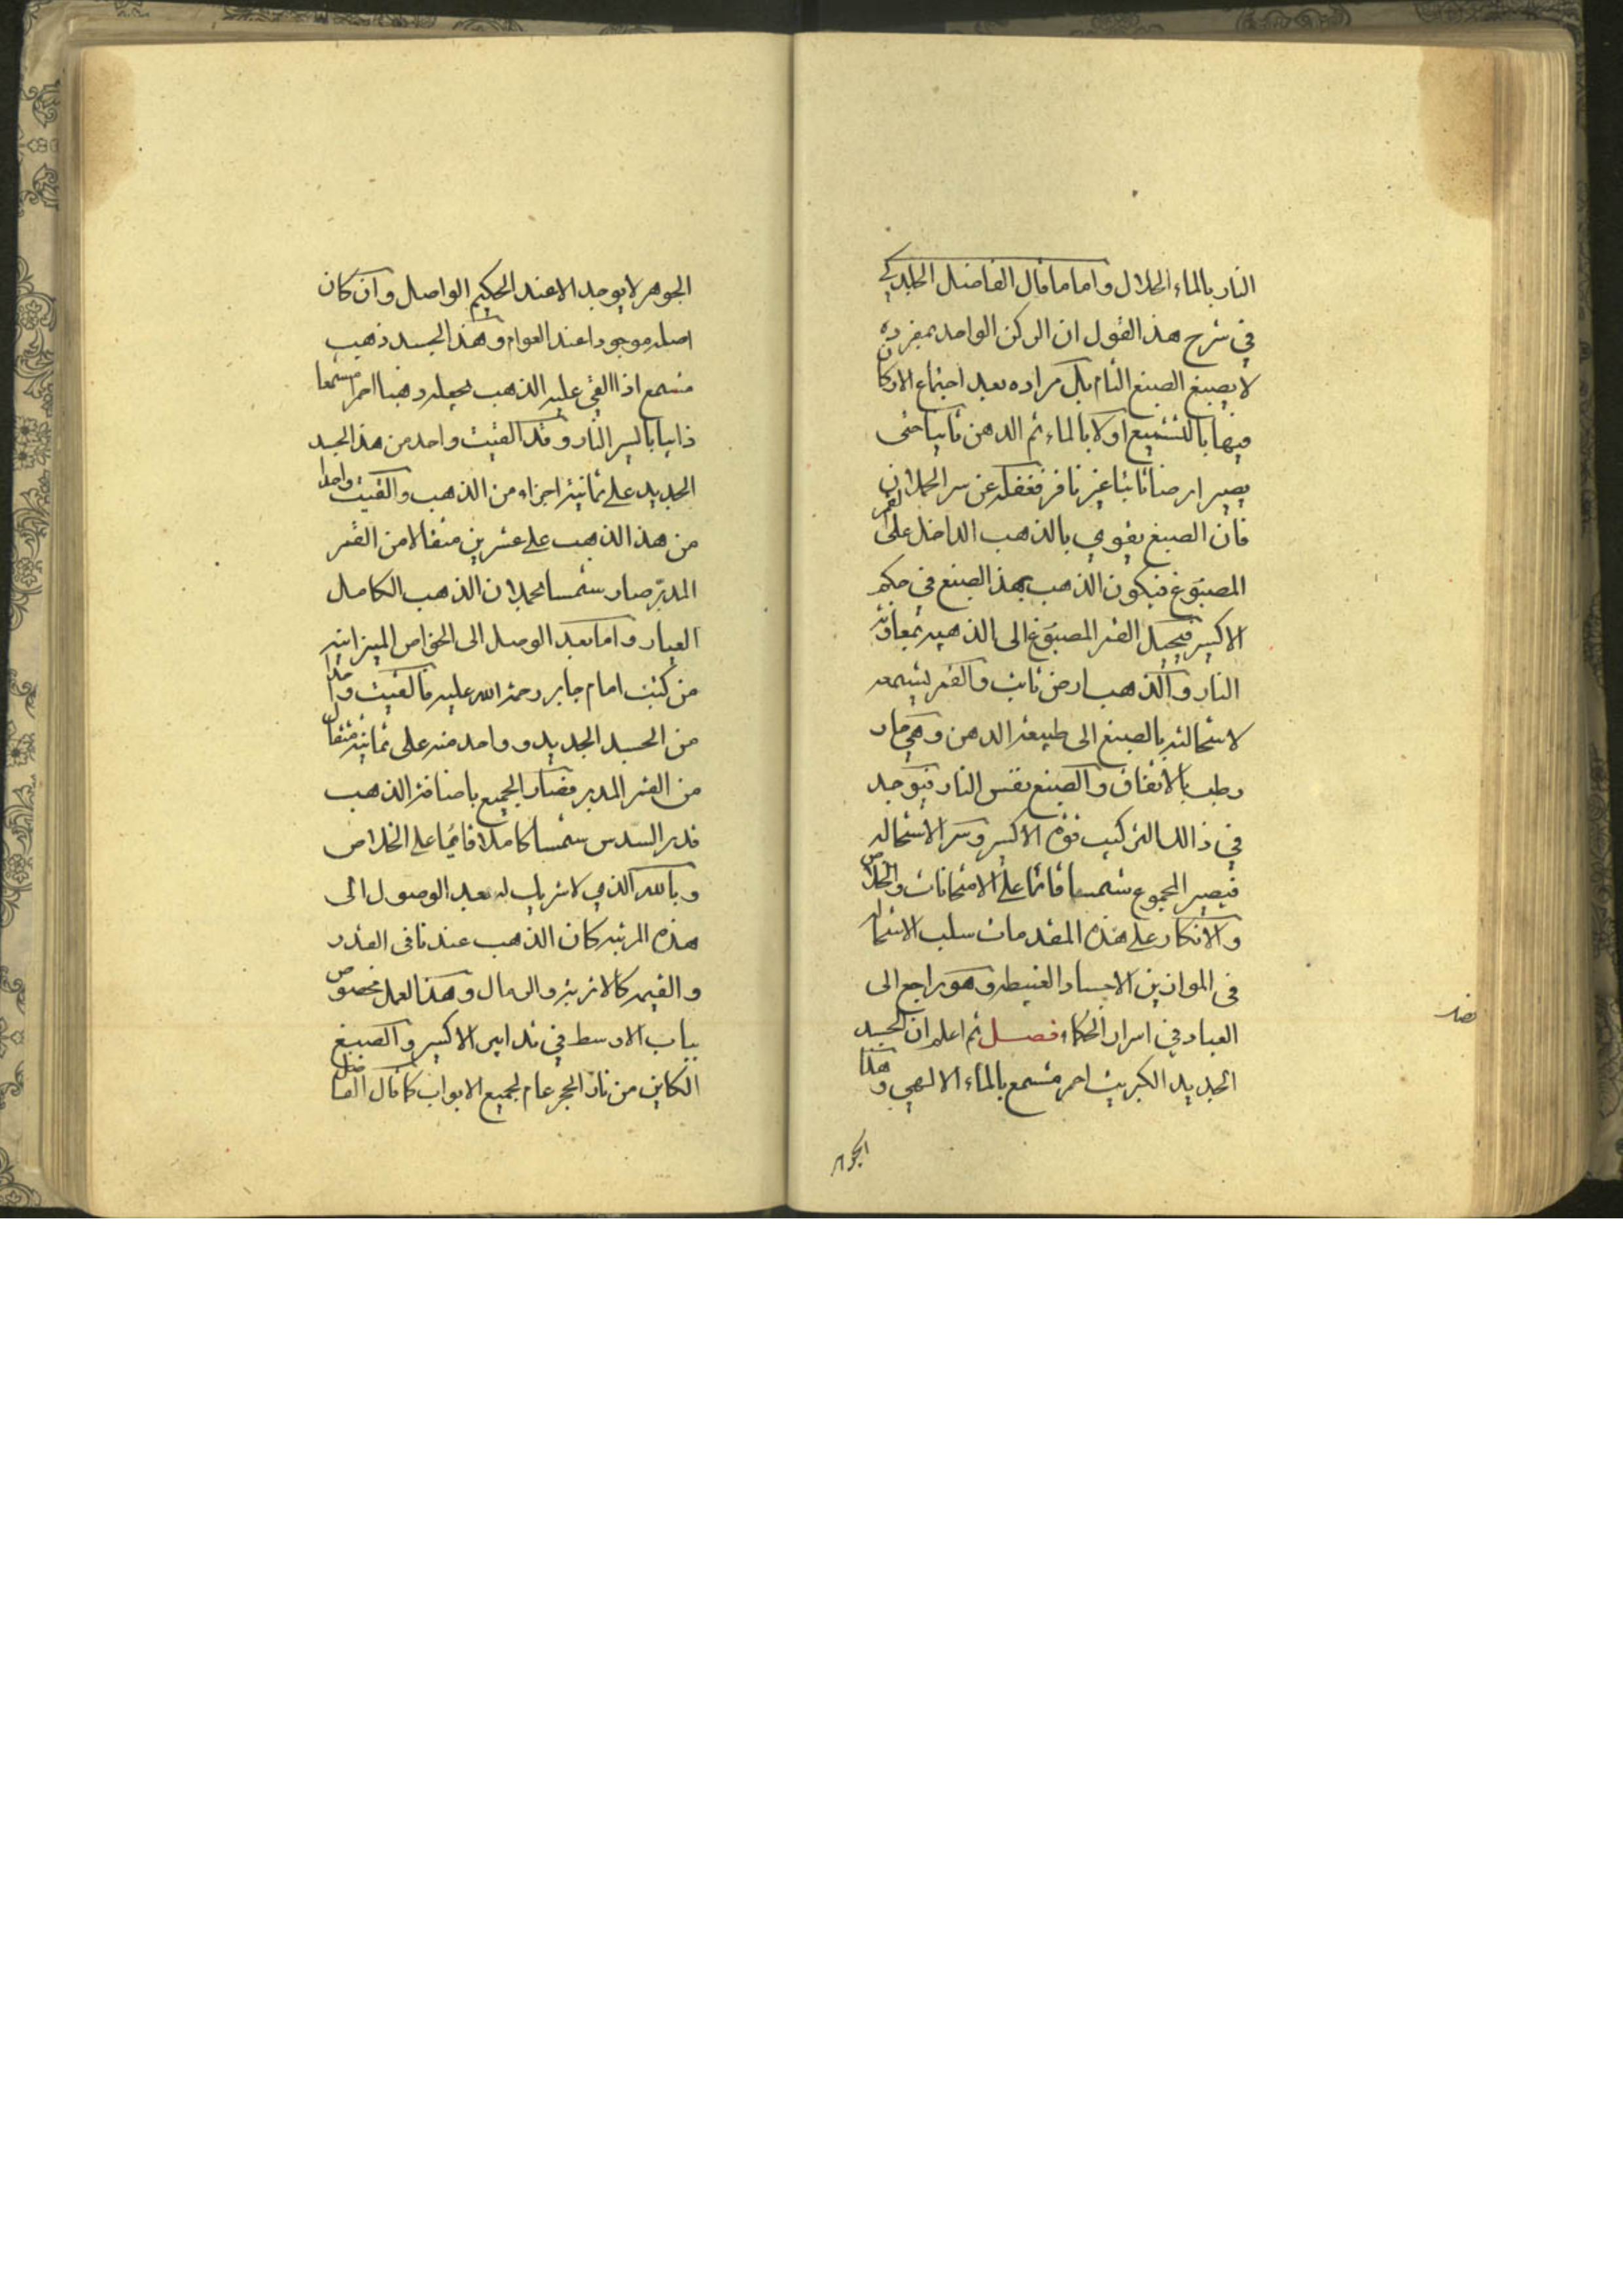 النار بالماء الحلال واما ما قال الفاضل الجلدكي
في شرح هذ القول ان الركن الواحد بمفرده
لا يصبغ الصبغ التام بل مراده بعد اجتماع الاركان
فيها بالتشميع اولا بالماء ثم الدهن ثانيا حتى
يصير ارضا ثابتا غير نافر فغفله عن سر الحملان
فان الصبغ يقوي بالذهب الداخل على القمر
المصبوغ فيكون الذهب بهذ الصبغ في حكم
الاكسير فيحيل القمر المصبوغ الى الذهبيه بمعاونة
النار والذهب ارض ثابت والقمر بشمعه
لاستحالته بالصبغ الى طبيعة الدهن وهي حار
رطب بالاتفاق والصبغ نفس النار فيوجد
في ذالك التركيب قوة الاكسير وسر الاستحاله
فيصير المجموع شمسا قائما على الامتحانات والخلاص
والانكار على هذه المقدمات سلب الاستحاله
في الموازين الاجساد الغبيطه وهو راجع الى
العباد في اسرار الحكماء فصل ثم اعلم ان الجسد
الجديد الكبريت احمر مشمع بالماء الالهي وهذا
الجوهر
الجوهر لا يوجد الا عند الحكيم الواصل وان كان
اصله موجودا عند العوام وهذ الجسد ذهب
مشمع اذا القي عليه الذهب يجعله ذهبا احمرا مشمعا
ذايبا بايسر النار وقد القيت واحد من هذ الجسد
الجديد على ثمانية اجزاء من الذهب والقيت واحدا
من هذ الذهب على عشرين مثقالا من القمر
المدبر صار شمسا بحملان الذهب الكامل
العيار واما بعد الوصل الى الخواص الميزانيه
من كتب امام جابر رحمة الله عليه فالقيت واحدا
من الجسد الجديد و واحد منه على ثمانية مثقال
من القمر المدبر فصار الجميع باضافة الذهب
قدر السدس شمسا كاملا قايما على الخلاص
وبالله الذي لا شريك له بعد الوصول الى
هذه المرتبه كان الذهب عندنا في القدر
والقيمه كالاتربة والرمال وهذ العمل مخصوص
بباب الاوسط في تدابير الاكسير والصبغ
الكاين من نار الحجر عام لجميع الابواب كما قال الفاضل